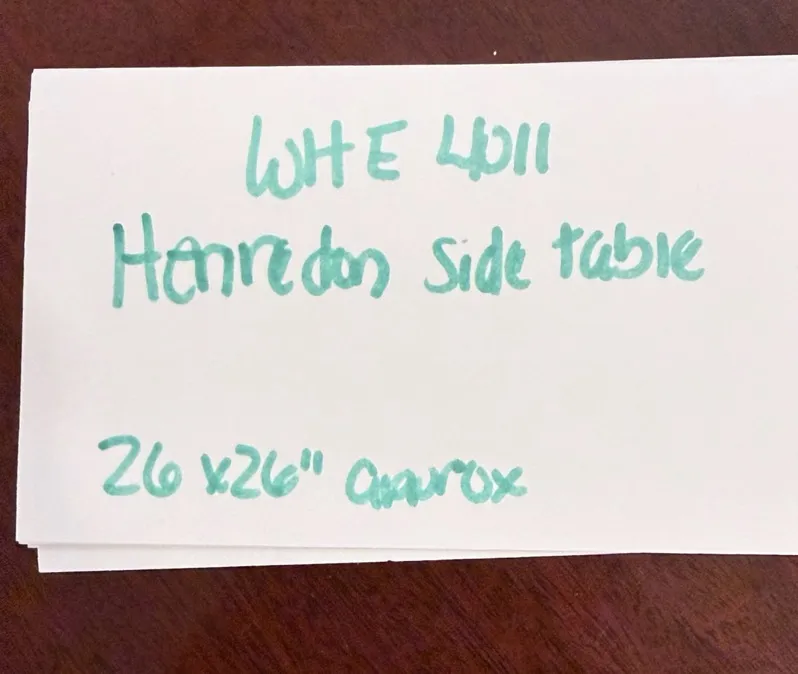 WHE 4011
Henredon side table
26 x26" approx